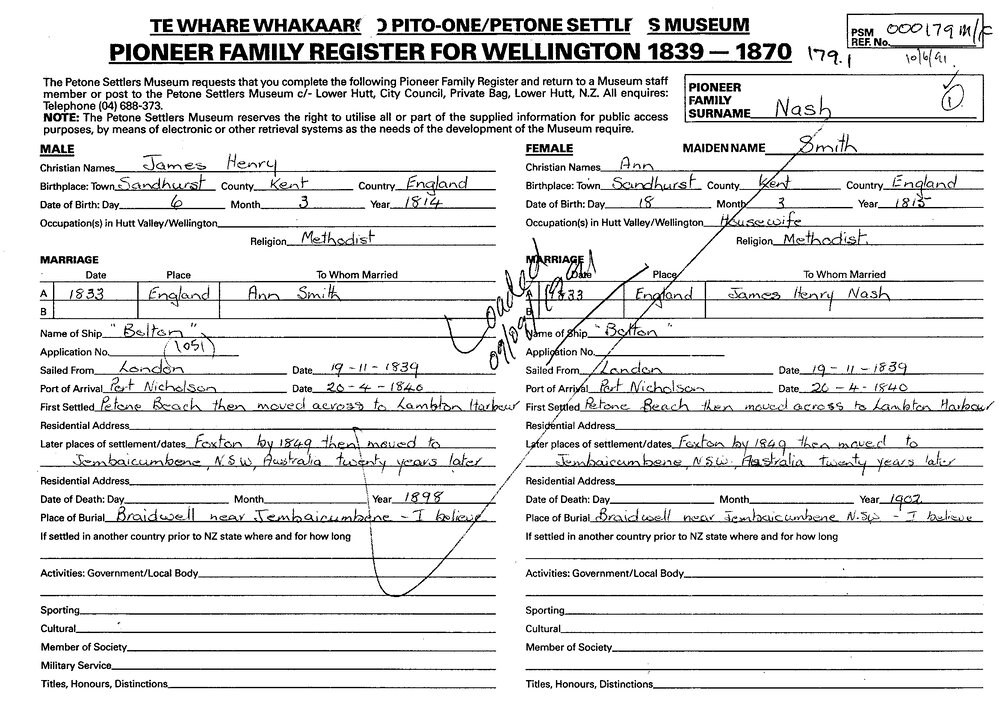 TE WHARE WHAKAARO O PITO-ONE/PETONE SETTLERS MUSEUM
PIONEER FAMILY REGISTER FOR WELLINGTON 1839 — 1870
179.1
PSM REF. No. 000179 m/f
10/6/91
The Petone Settlers Museum requests that you complete the following Pioneer Family Register and return to a Museum staff
member or post to the Petone Settlers Museum c/- Lower Hutt, City Council, Private Bag, Lower Hutt, N.Z. All enquires:
Telephone (04) 688-373.
NOTE: The Petone Settlers Museum reserves the right to utilise all or part of the supplied information for public access
purposes, by means of electronic or other retrieval systems as the needs of the development of the Museum require.
PIONEER
FAMILY
SURNAME Nash
1
MALE
Christian Names James Henry
Birthplace: Town Sandhurst County Kent Country England
Date of Birth: Day 6 Month 3 Year 1814
Occupation(s) in Hutt Valley/Wellington
Religion Methodist
MARRIAGE
Date Place To Whom Married
A 1833 England Ann Smith
B
Name of Ship "Bolton"
Application No. (1051)
Sailed From London Date 19-11-1839
Port of Arrival Port Nicholson Date 20-4-1840
First Settled Petone Beach then moved across to Lambton Harbour
Residential Address
Later places of settlement/dates Foxton by 1849 then moved to
Jembaicumbene, N.S.W, Australia twenty years later
Residential Address
Date of Death: Day Month Year 1898
Place of Burial Braidwell near Jembaicumbene - I believe
If settled in another country prior to NZ state where and for how long
Activities: Government/Local Body
Sporting
Cultural
Member of Society
Military Service
Titles, Honours, Distinctions
Loaded
FEMALE MAIDEN NAME Smith
Christian Names Ann
Birthplace: Town Sandhurst County Kent Country England
Date of Birth: Day 18 Month 3 Year 1815
Occupation(s) in Hutt Valley/Wellington Housewife
Religion Methodist.
MARRIAGE
Date Place To Whom Married
A 1833 England James Henry Nash
B
Name of Ship "Bolton"
Application No.
Sailed From London Date 19-11-1839
Port of Arrival Port Nicholson Date 20-4-1840
First Settled Petone Beach then moved across to Lambton Harbour
Residential Address
Later places of settlement/dates Foxton by 1849 then moved to
Jembaicumbene, N.S.W. Australia twenty years later
Residential Address
Date of Death: Day Month Year 1902
Place of Burial Braidwell near Jembaicumbene N.S.W - I believe
If settled in another country prior to NZ state where and for how long
Activities: Government/Local Body
Sporting
Cultural
Member of Society
Titles, Honours, Distinctions